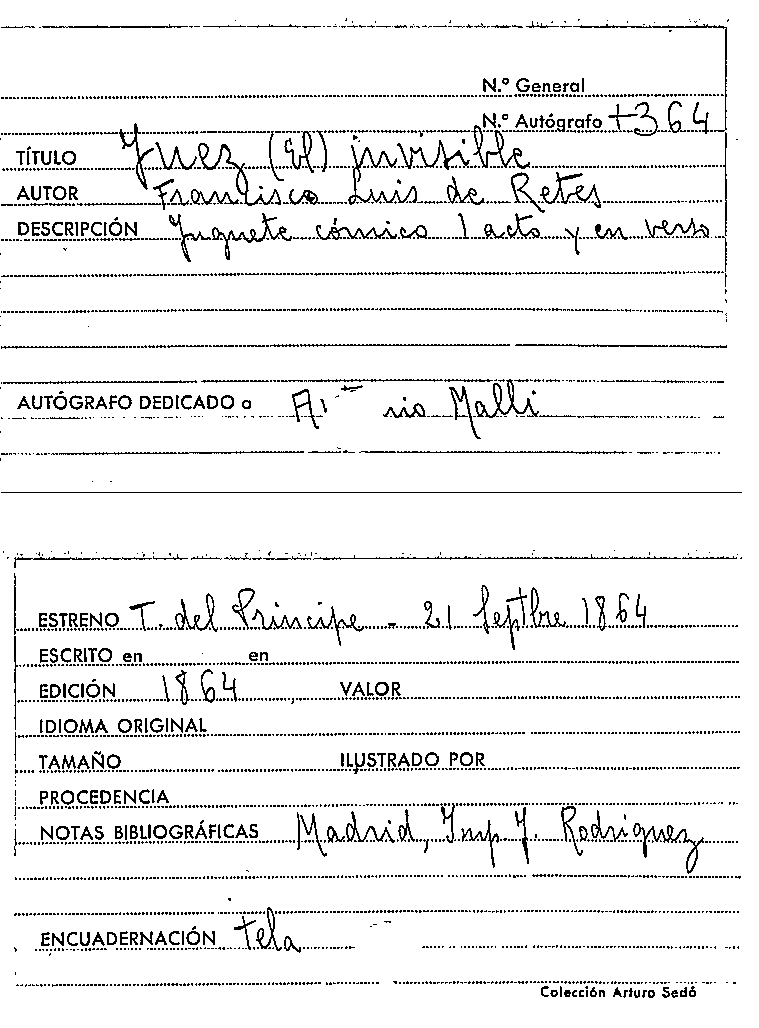 N.º General
N.º Autógrafo +364
TÍTULO Juez (El) invisible
AUTOR Francisco Luis de Retes
DESCRIPCIÓN Juguete cómico 1 acto y en verso
AUTÓGRAFO DEDICADO a Malli
ESTRENO T. del Principe - 21 Septbre 1864
ESCRITO en en
EDICIÓN 1864 VALOR
IDIOMA ORIGINAL
TAMAÑO ILUSTRADO POR
PROCEDENCIA
NOTAS BIBLIOGRÁFICAS Madrid, Imp. J. Rodriguez
ENCUADERNACIÓN tela
Colección Arturo Sedó